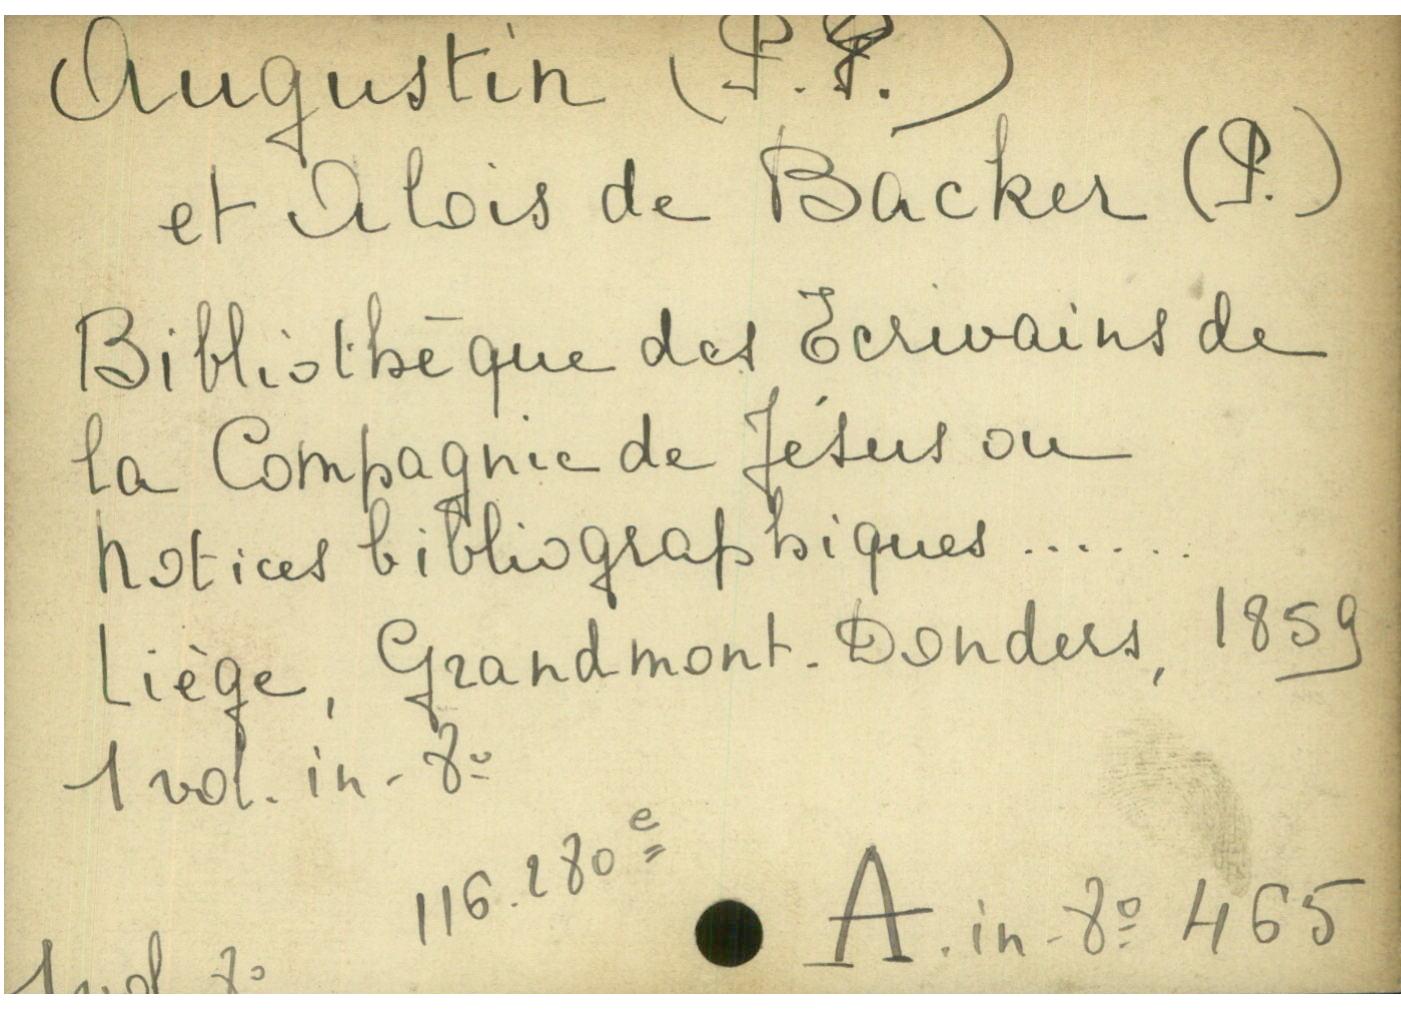 Augustin (P.P.)
et Alois de Backer (P.)
Bibliothèque des Ecrivains de
la Compagnie de Jésus ou
notices bibliographiques ......
Liège, Grandmont-Donders, 1859
1 vol. in-8º
116.280 e
A. in-8º 465
1 vol 8º